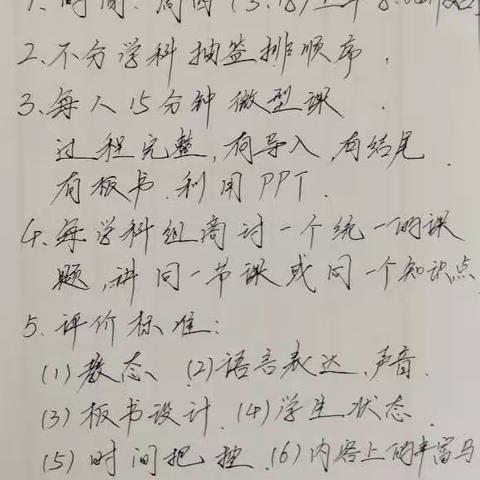 1.时间:周四(3.18)上午8:00开始
2.不分学科抽签排顺序.
3.每人15分钟微型课.
过程完整,有导入,有结尾.
有板书.利用PPT.
4.每学科组商讨一个统一的课
题,讲同一节课或同一个知识点
5.评价标准:
(1)教态、(2)语言表达,声音.
(3)板书设计.(4)学生状态.
(5)时间把控.(6)内容上的丰富与